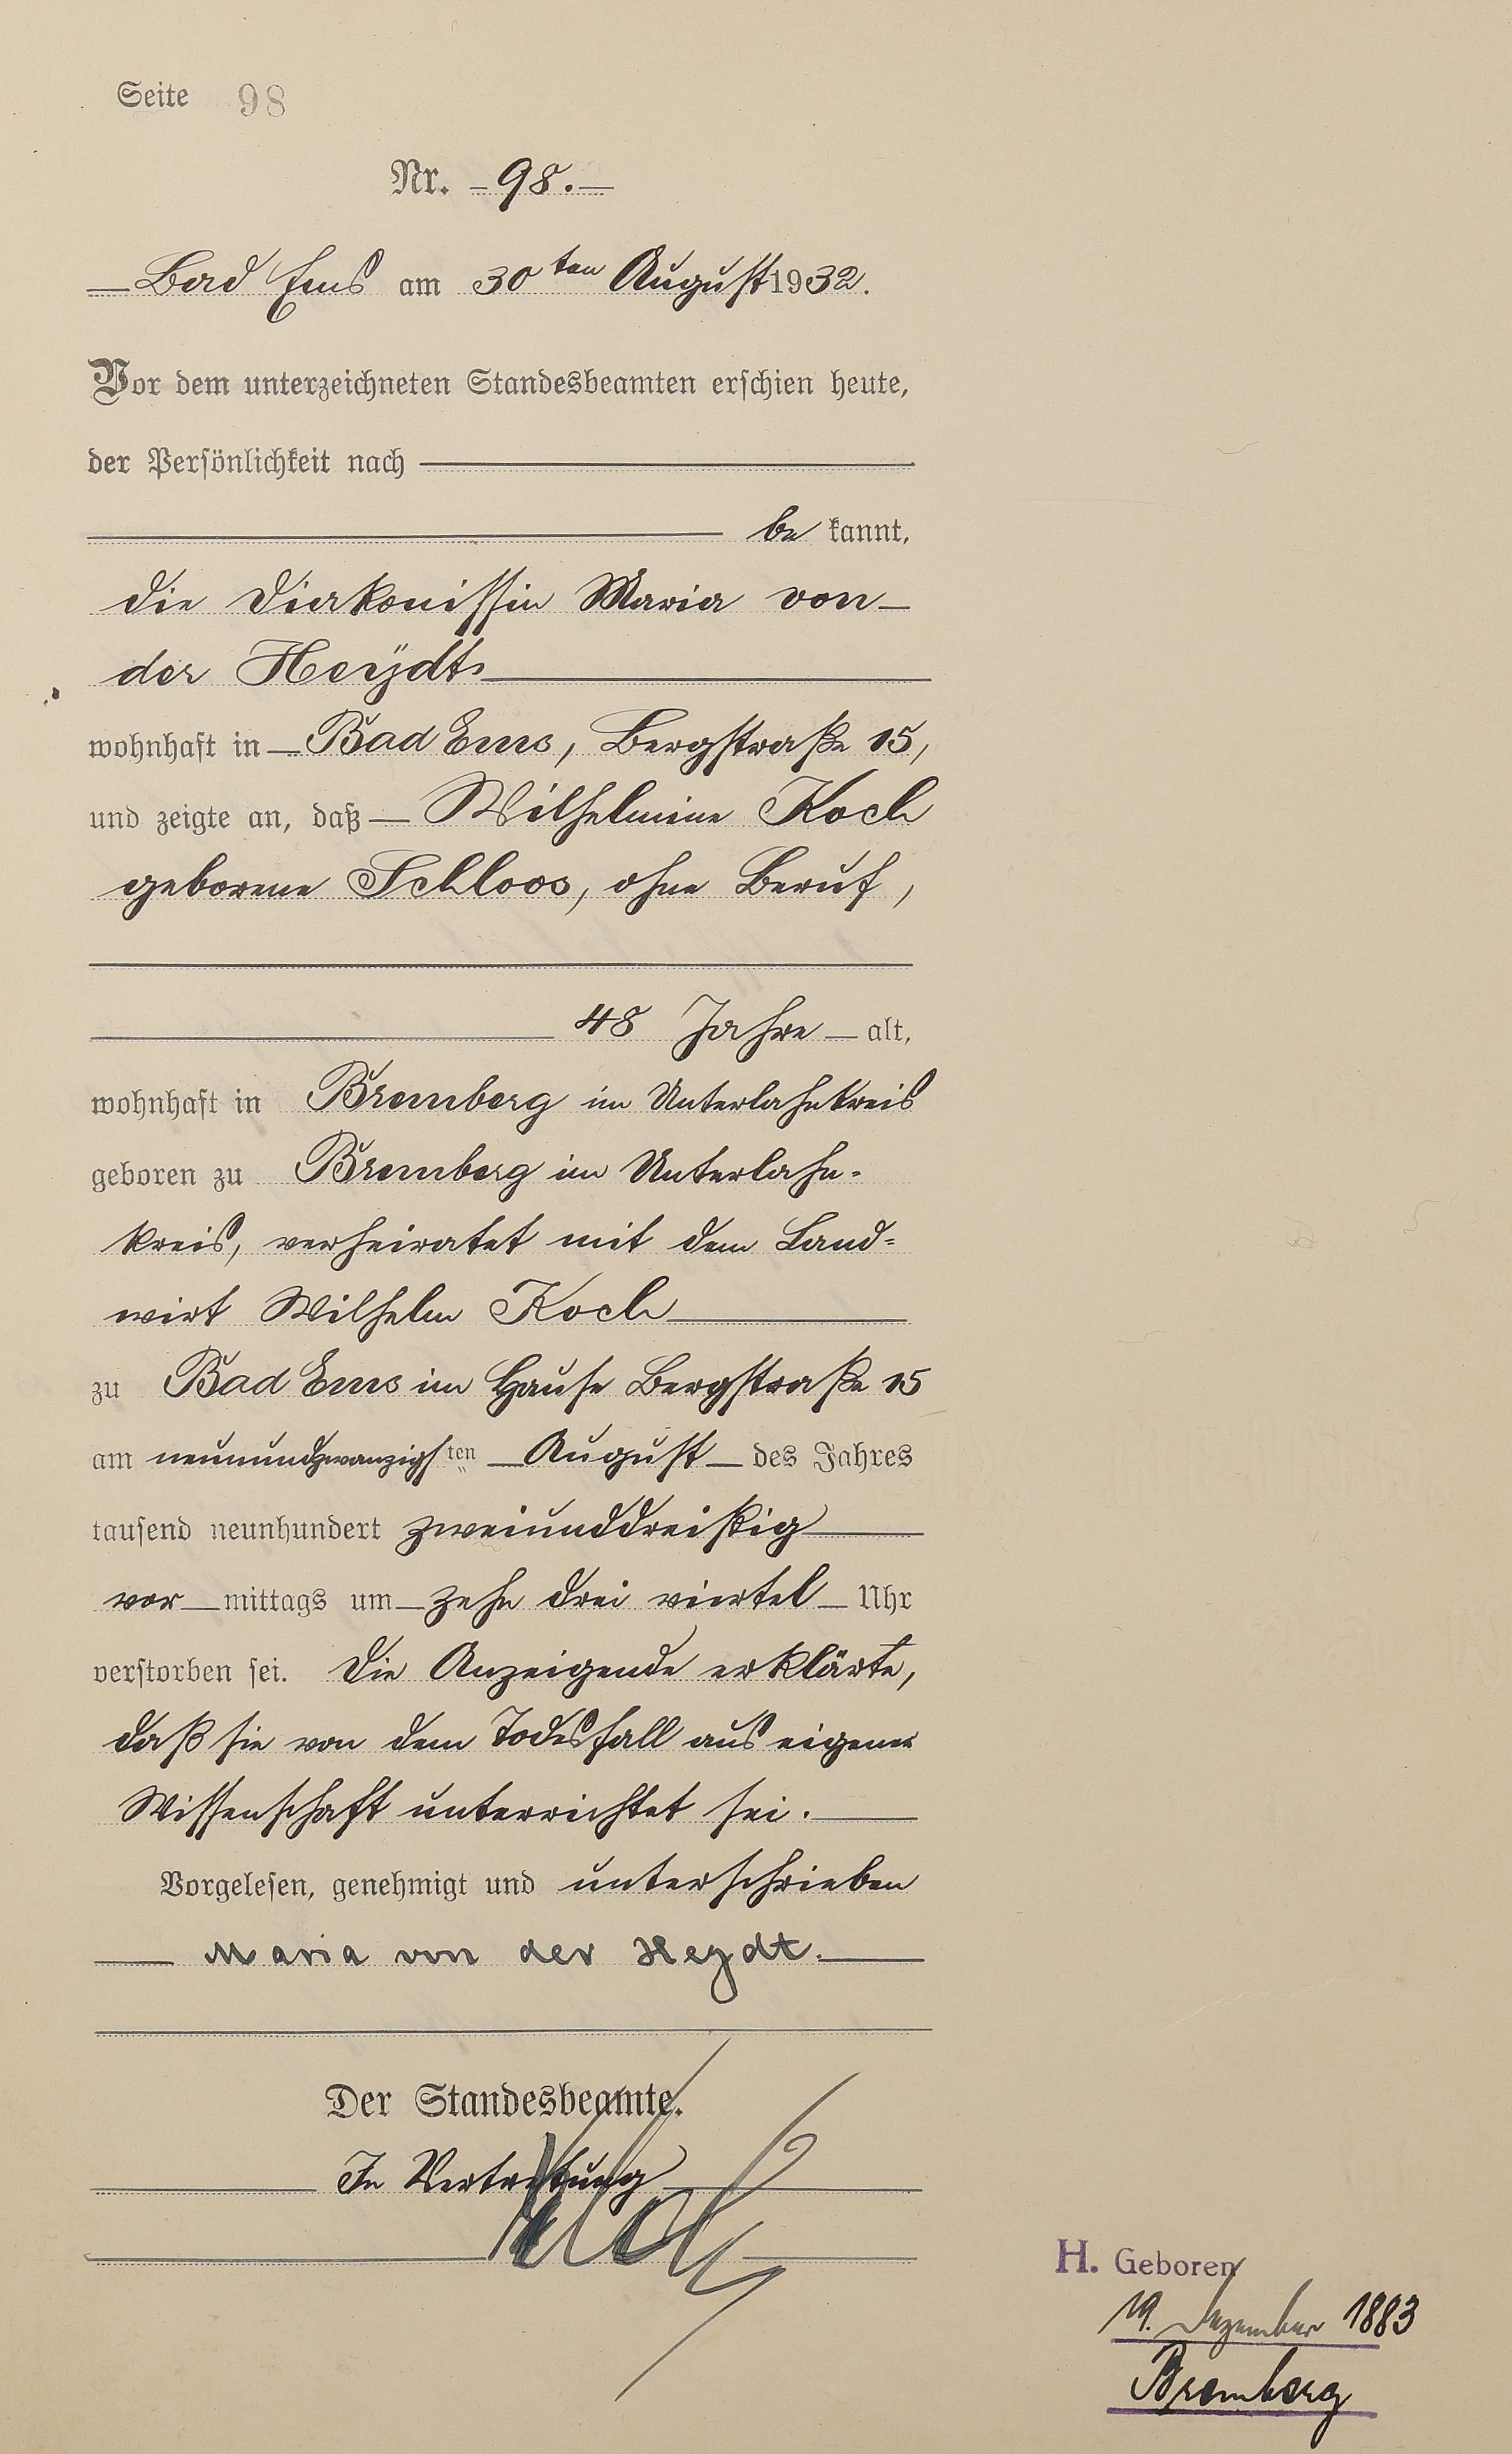 Seite 98
Nr. 98.
Bad Ems am 30ten August 1932.
Vor dem unterzeichneten Standesbeamten erschien heute,
der Persönlichkeit nach
be kannt,
die Diakonissin Maria von
der Heÿdt
wohnhaft in Bad Ems, Bergstraße 15,
und zeigte an, daß Wilhelmine Koch
geborene Schloos, ohne Beruf,
48 Jahre alt,
wohnhaft in Bremberg im Unterlahnkreis
geboren zu Bremberg im Unterlahn-
kreis, verheiratet mit dem Land-
wirt Wilhelm Koch
zu Bad Ems im Hause Bergstraße 15
am neunundzwanzigsten August des Jahres
tausend neunhundert zweiunddreißig
vor mittags um zehn drei viertel Uhr
verstorben sei. Die Anzeigende erklärte,
daß sie von dem Todesfall aus eigener
Wissenschaft unterrichtet sei.
Vorgelesen, genehmigt und unterschrieben
Maria von der Heydt.
Der Standesbeamte.
In Vertretung
H. Geboren
19. Dezember 1883
Bremberg